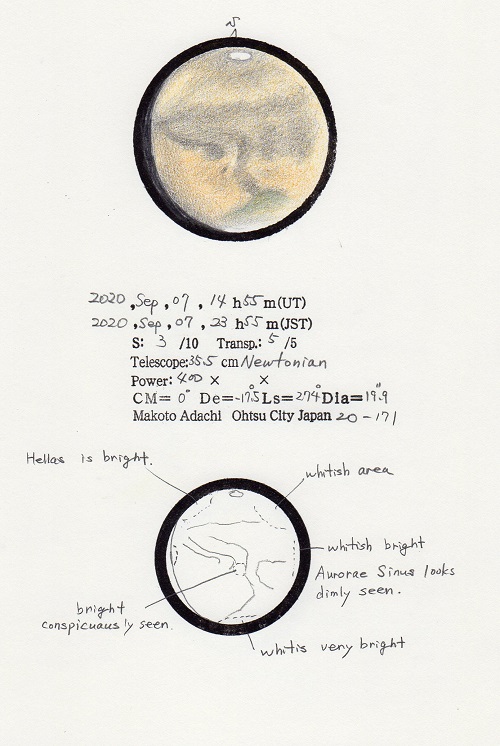 S
2020 , Sep , 07 , 14 h 55 m (UT)
2020 , Sep , 07 , 23 h 55 m (JST)
S: 3 /10 Transp.: 5 /5
Telescope: 35.5 cm Newtonian
Power: 400 × ×
CM= 0° De= -17.5° Ls= 274° Dia= 19.9"
Makoto Adachi Ohtsu City Japan 20-171
Hellas is bright.
whitish area
whitish bright
Aurorae Sinus looks
dimly seen.
bright
conspicuausly seen.
whitis very bright